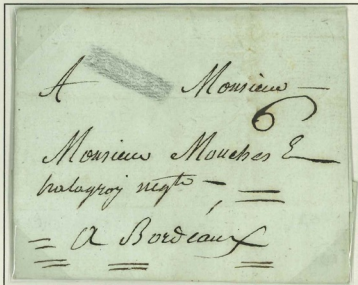 A Monsieur
6
Monsieur Mouches &
negte
A Bordeaux